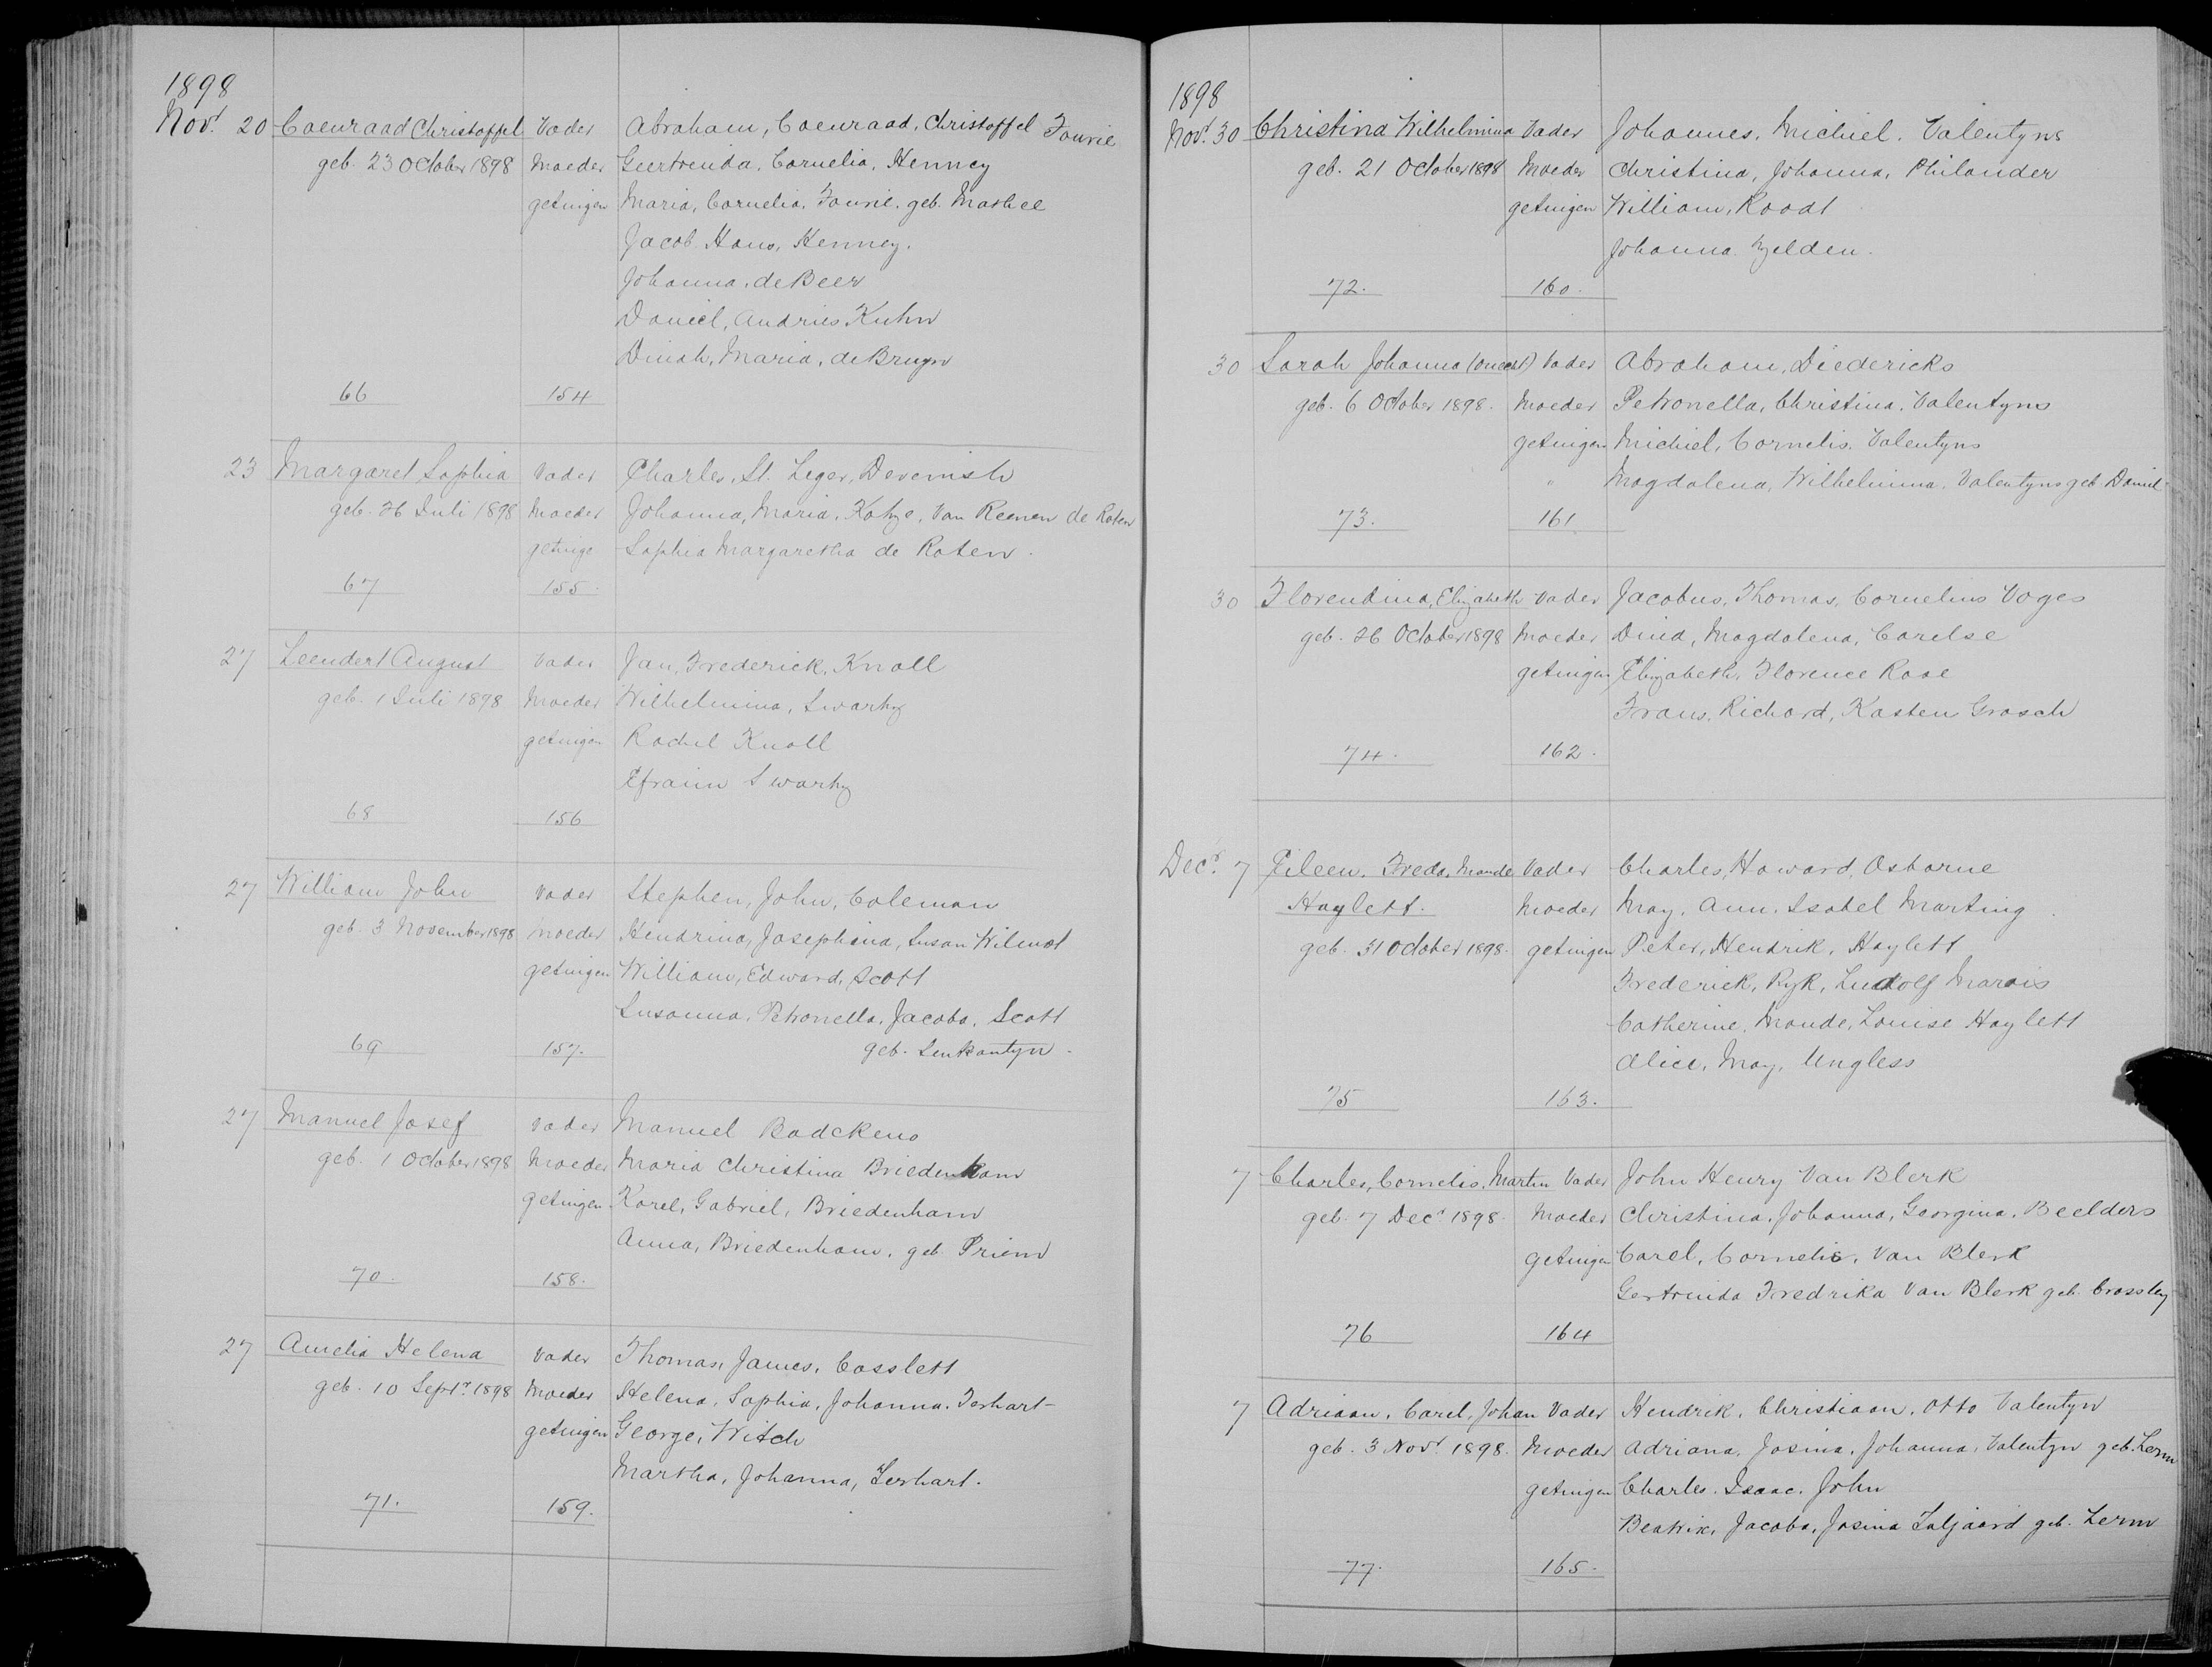 1898
Novr. 20 Coenraad Christoffel Vader Abraham, Coenraad, Christoffel Fourie
geb. 23 October 1898 Moeder Geertruida, Cornelia, Henney
getuigen Maria, Cornelia, Fourie, geb. Maskee
Jacob Hans, Henney.
Johanna, de Beer
Daniel, Andries Kuhn
Dinah, Maria, de Bruyn
66 154
23 Margaret Sophia Vader Charles, St. Leger, Devenish
geb. 26 Juli 1898 Moeder Johanna, Maria, Kotze, Van Reenen de Roten
getuige Sophia Margaretha de Roten.
67 155.
27 Leendert August Vader Jan, Frederick, Knoll
geb. 1 Juli 1898 Moeder Wilhelmina, Swartz
getuigen Rachel Knoll
Efraim Swartz
68 156
27 William John Vader Stephen, John, Coleman
geb. 3 November 1898 Moeder Hendrina, Josephina, Susan Wilmot
getuigen William, Edward, Scott
Susanna, Petronella, Jacoba, Scott
69 157. geb. Senkantyn.
27 Manuel Josef Vader Manuel Badckens
geb. 1 October 1898 Moeder Maria Christina Briedenham
getuigen Karel, Gabriel, Briedenham
Anna, Briedenham, geb. Priem
70. 158.
27 Amelia Helena Vader Thomas, James, Casslett
geb. 10 Septr. 1898 Moeder Helena, Sophia, Johanna, Terhart
getuigen George, Witch
Martha, Johanna, Terhart.
71. 159.
1898
Novr. 30 Christina Wilhelmina Vader Johannes, Michiel, Valentyns
geb. 21 October 1898 Moeder Christina, Johanna, Philander
getuigen William, Roodt
Johanna Zyelden.
72. 160.
30 Sarah Johanna (onecht) Vader Abraham, Diedericks
geb. 6 October 1898. Moeder Petronella, Christina, Valentyns
getuigen Michiel, Cornelis, Valentyns
" Magdalena, Wilhelmina, Valentyns geb. Daniel
73. 161
30 Florendina, Elizabeth Vader Jacobus, Thomas, Cornelius Voges
geb. 26 October 1898 Moeder Dina, Magdalena, Carelse
getuigen Elizabeth, Florence Rose
Frans, Richard, Kasten Grosch
74. 162.
Decr. 7 Eileen, Freda, Maude Vader Charles, Howard, Osborne
Haylett. Moeder May, Ann, Isabel Marting
geb. 31 October 1898. getuigen Peter, Hendrik, Haylett
Frederick, Ryk, Ludolf Marais
Catherine, Maude, Louise Haylett
Alice, May, Ungless
75 163.
7 Charles, Cornelis, Martin Vader John Henry Van Blerk
geb. 7 Decr. 1898. Moeder Christina, Johanna, Georgina, Beelders
getuigen Carel, Cornelis, Van Blerk
Gertruida Fredrika Van Blerk geb. Crossley
76 164
7 Adriaan, Carel, Johan Vader Hendrik, Christiaan, Otto Valentyn
geb. 3 Novr. 1898. Moeder Adriana, Josina, Johanna, Valentyn geb. Lerm
getuigen Charles, Isaac, John
Beatrix, Jacoba, Josina Taljaard geb. Lerm
77. 165.